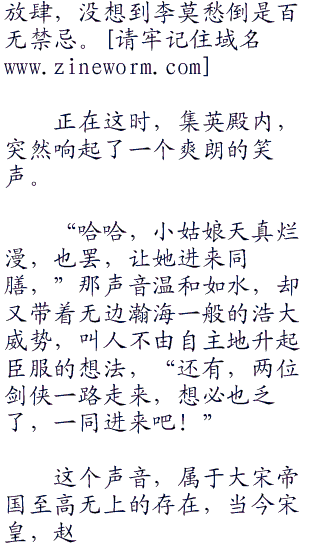 放肆，没想到李莫愁倒是百
无禁忌。[请牢记住域名
www.zineworm.com]
正在这时，集英殿内，
突然响起了一个爽朗的笑
声。
“哈哈，小姑娘天真烂
漫，也罢，让她进来同
膳，”那声音温和如水，却
又带着无边瀚海一般的浩大
威势，叫人不由自主地升起
臣服的想法，“还有，两位
剑侠一路走来，想必也乏
了，一同进来吧！”
这个声音，属于大宋帝
国至高无上的存在，当今宋
皇，赵